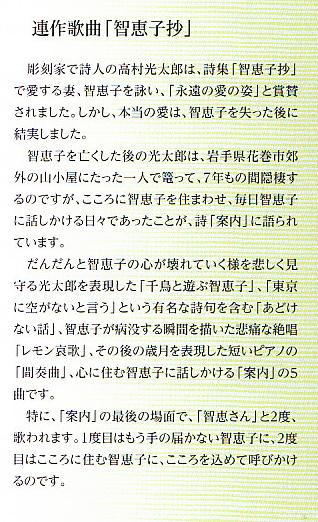 連作歌曲「智恵子抄」
彫刻家で詩人の高村光太郎は、詩集「智恵子抄」
で愛する妻、智恵子を詠い、「永遠の愛の姿」と賞賛
されました。しかし、本当の愛は、智恵子を失った後に
結実しました。
智恵子を亡くした後の光太郎は、岩手県花巻市郊
外の山小屋にたった一人で篭って、7年もの間隠棲す
るのですが、こころに智恵子を住まわせ、毎日智恵子
に話しかける日々であったことが、詩「案内」に語られ
ています。
だんだんと智恵子の心が壊れていく様を悲しく見
守る光太郎を表現した「千鳥と遊ぶ智恵子」、「東京
に空がないと言う」という有名な詩句を含む「あどけ
ない話」、智恵子が病没する瞬間を描いた悲痛な絶唱
「レモン哀歌」、その後の歳月を表現した短いピアノの
「間奏曲」、心に住む智恵子に話しかける「案内」の5
曲です。
特に、「案内」の最後の場面で、「智恵さん」と2度、
歌われます。1度目はもう手の届かない智恵子に、2度
目はこころに住む智恵子に、こころを込めて呼びかけ
るのです。